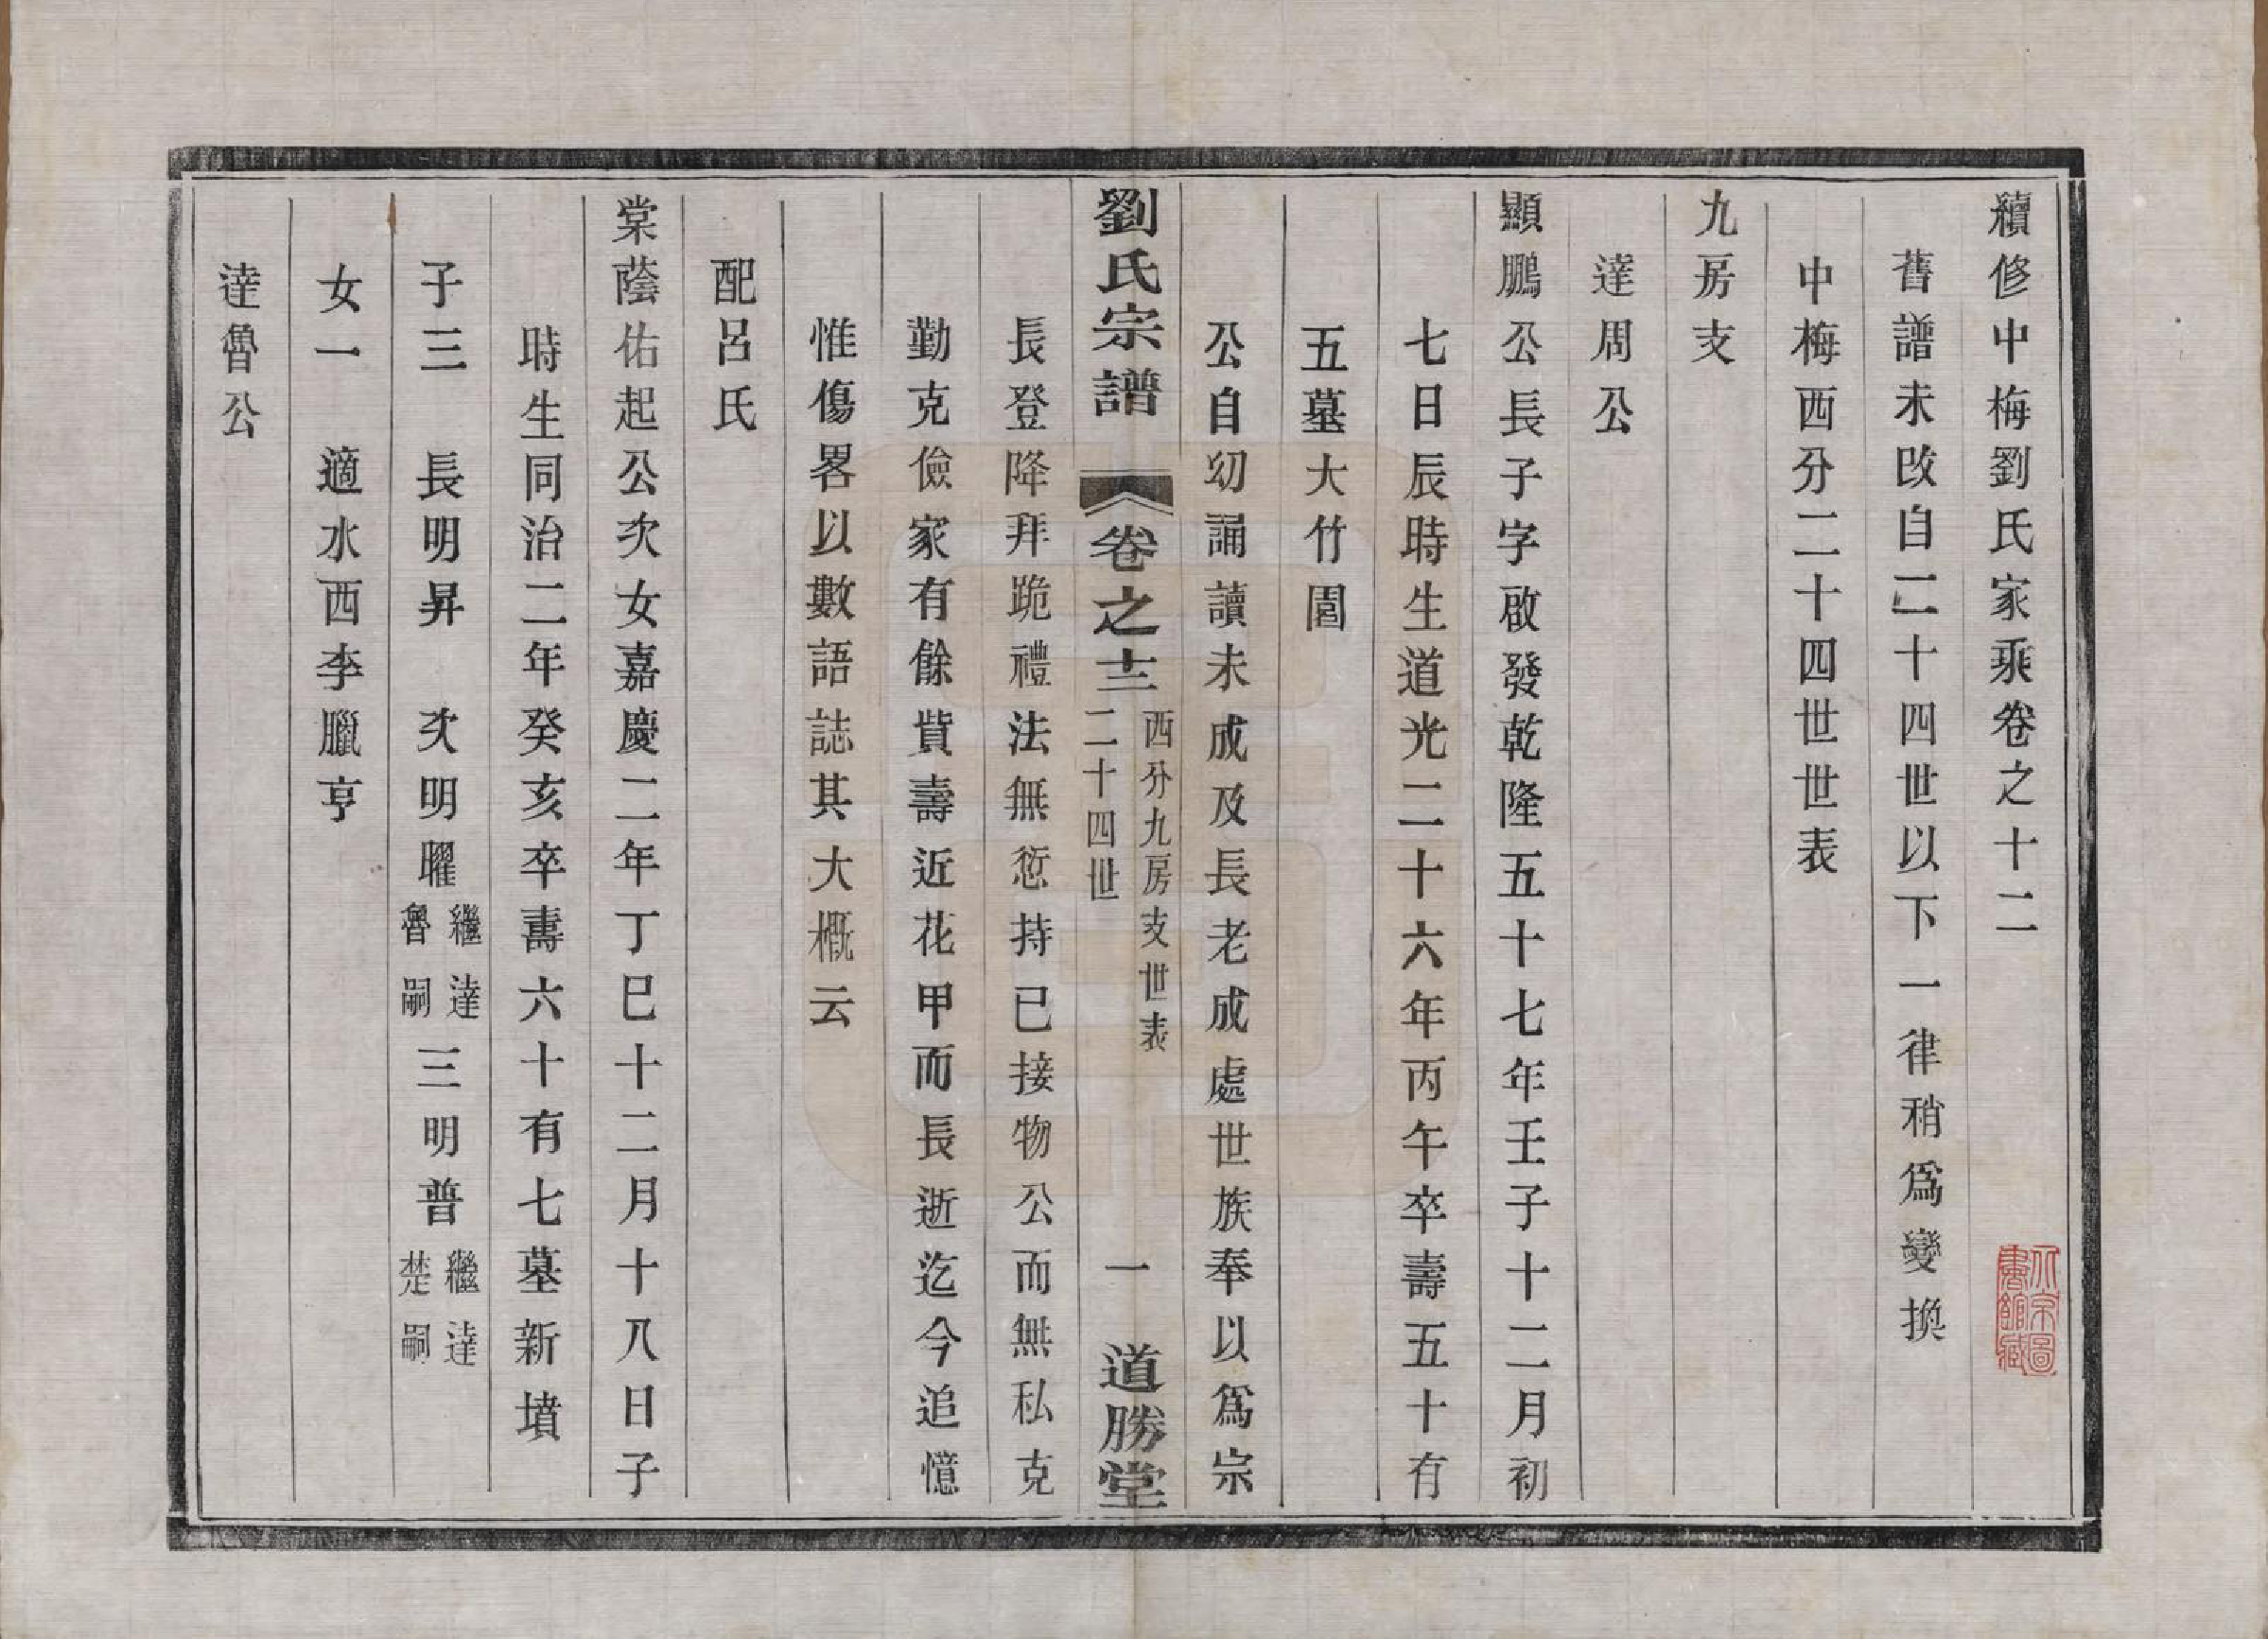 續修中梅劉氏家乘卷之十二
舊譜未改自二十四世以下一律稍爲變換
中梅西分二十四世世表
九房支
達周公
顯鵬公長子字啟發乾隆五十七年壬子十二月初
七日辰時生道光二十六年丙午卒壽五十有
五墓大竹園
公自幼誦讀未成及長老成處世族奉以爲宗
劉氏宗譜 卷之十二 西分九房支世表 二十四世 一 道勝堂
長登降拜跪禮法無愆持已接物公而無私克
勤克儉家有餘貲壽近花甲而長逝迄今追憶
惟傷畧以數語誌其大概云
配呂氏
棠蔭佑起公次女嘉慶二年丁巳十二月十八日子
時生同治二年癸亥卒壽六十有七墓新墳
子三 長明昇 次明曜繼達魯嗣 三明普繼達楚嗣
女一 適水西李臘亨
達魯公